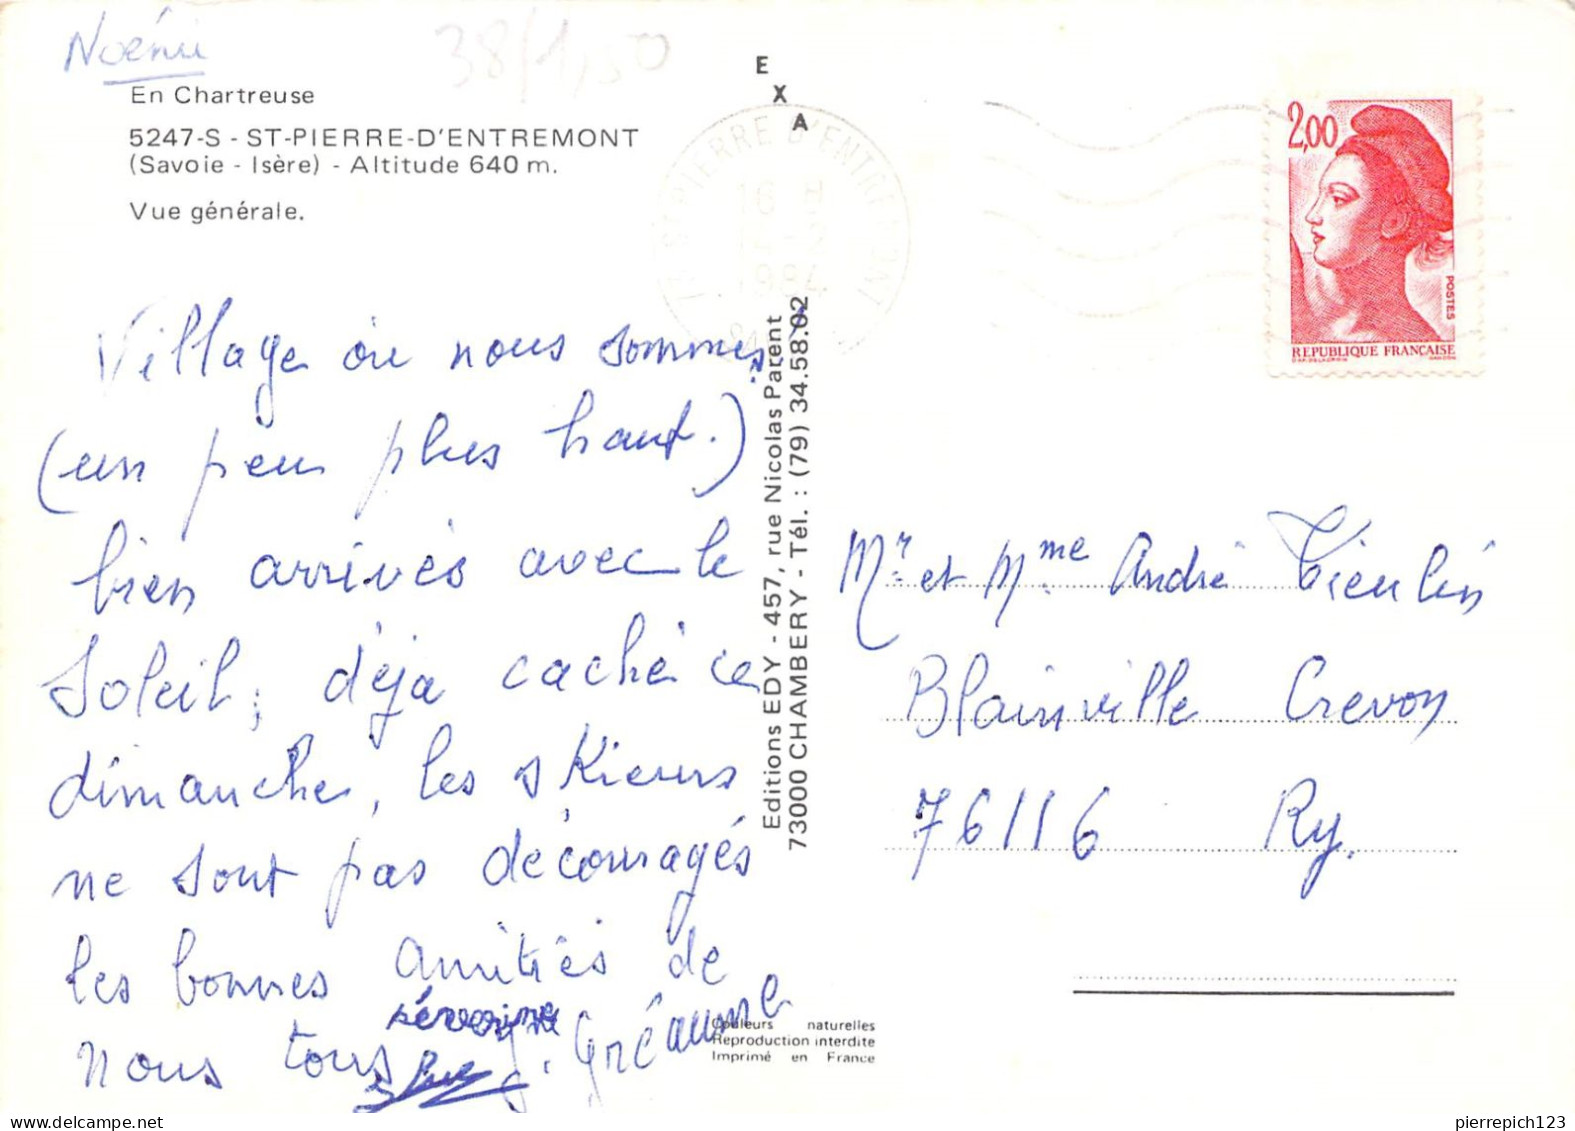 Noémi
38/1,50
En Chartreuse
5247-S - ST-PIERRE-D'ENTREMONT
(Savoie - Isère) - Altitude 640 m.
Vue générale.
E
X
A
ST PIERRE D'ENTREMONT
16 H
1984
2,00
POSTES
REPUBLIQUE FRANÇAISE
Village où nous sommes,
(un peu plus haut.)
bien arrivés avec le
Soleil, déja caché ce
dimanche, les skieurs
ne sont pas découragés
les bonnes amitiés de
nous tous
séverine
J. Gréaume
Editions EDY - 457, rue Nicolas Parent
73000 CHAMBERY - Tél. : (79) 34.58.02
Mr. et Mme André Tieulin
Blainville Crevon
76116 Ry.
Couleurs naturelles
Reproduction interdite
Imprimé en France
pierrepich123